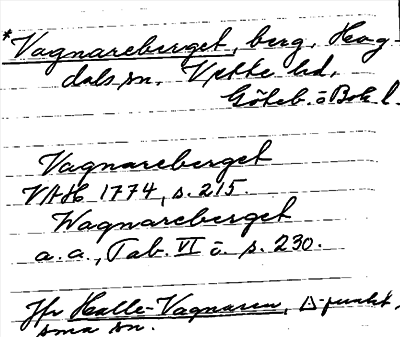 *Vagnareberget, berg, Hog-
dals sn. Vette hd,
Göteb. o Boh l.
Vagnareberget
VAH 1774, s. 215.
Wagnareberget
a. a., Tab. VI o. s. 230.
Jfr Halle-Vagnaren, △-punkt,
sma sn.